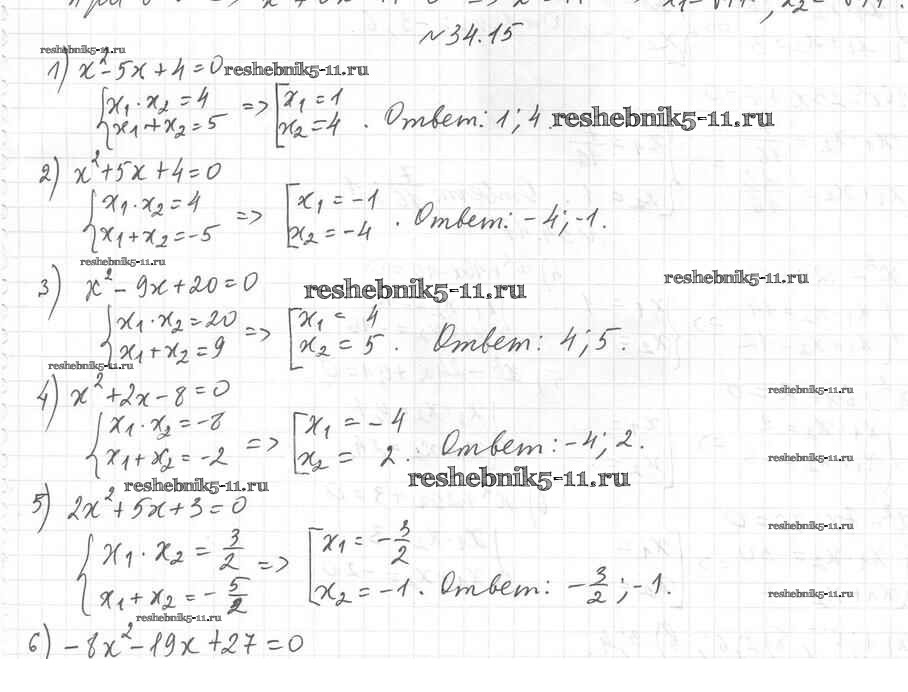 №34.15
reshebnik5-11.ru
1) x²-5x+4=0 reshebnik5-11.ru
{x₁·x₂=4 => [x₁=1
{x₁+x₂=5 [x₂=4 . Ответ: 1; 4 reshebnik5-11.ru
2) x²+5x+4=0
{x₁·x₂=4 => [x₁=-1
{x₁+x₂=-5 [x₂=-4 . Ответ: -4; -1.
reshebnik5-11.ru
3) x²-9x+20=0 reshebnik5-11.ru reshebnik5-11.ru
{x₁·x₂=20 => [x₁= 4
{x₁+x₂=9 [x₂=5 . Ответ: 4; 5.
reshebnik5-11.ru
4) x²+2x-8=0 reshebnik5-11.ru
{x₁·x₂=-8 => [x₁=-4
{x₁+x₂=-2 [x₂= 2. Ответ: -4; 2.
reshebnik5-11.ru
reshebnik5-11.ru reshebnik5-11.ru
5) 2x²+5x+3=0
reshebnik5-11.ru
{x₁·x₂=3/2 => [x₁=-3/2
{x₁+x₂=-5/2 [x₂=-1. Ответ: -3/2; -1.
reshebnik5-11.ru
reshebnik5-11.ru
6) -8x²-19x+27=0